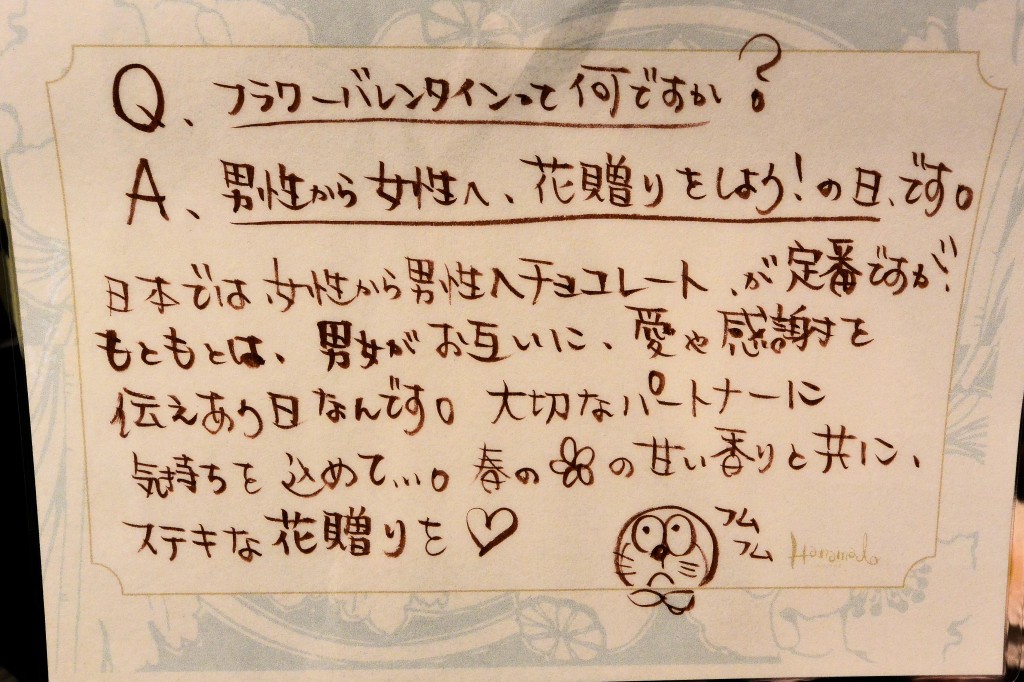 Q、フラワーバレンタインって何ですか?
A、男性から女性へ、花贈りをしよう!の日、です。
日本では、女性から男性へチョコレート、が定番ですが、
もともとは、男女がお互いに、愛や感謝を
伝えあう日なんです。大切なパートナーに
気持ちを込めて…。春の の甘い香りと共に、
ステキな花贈りを♡
フム
フム